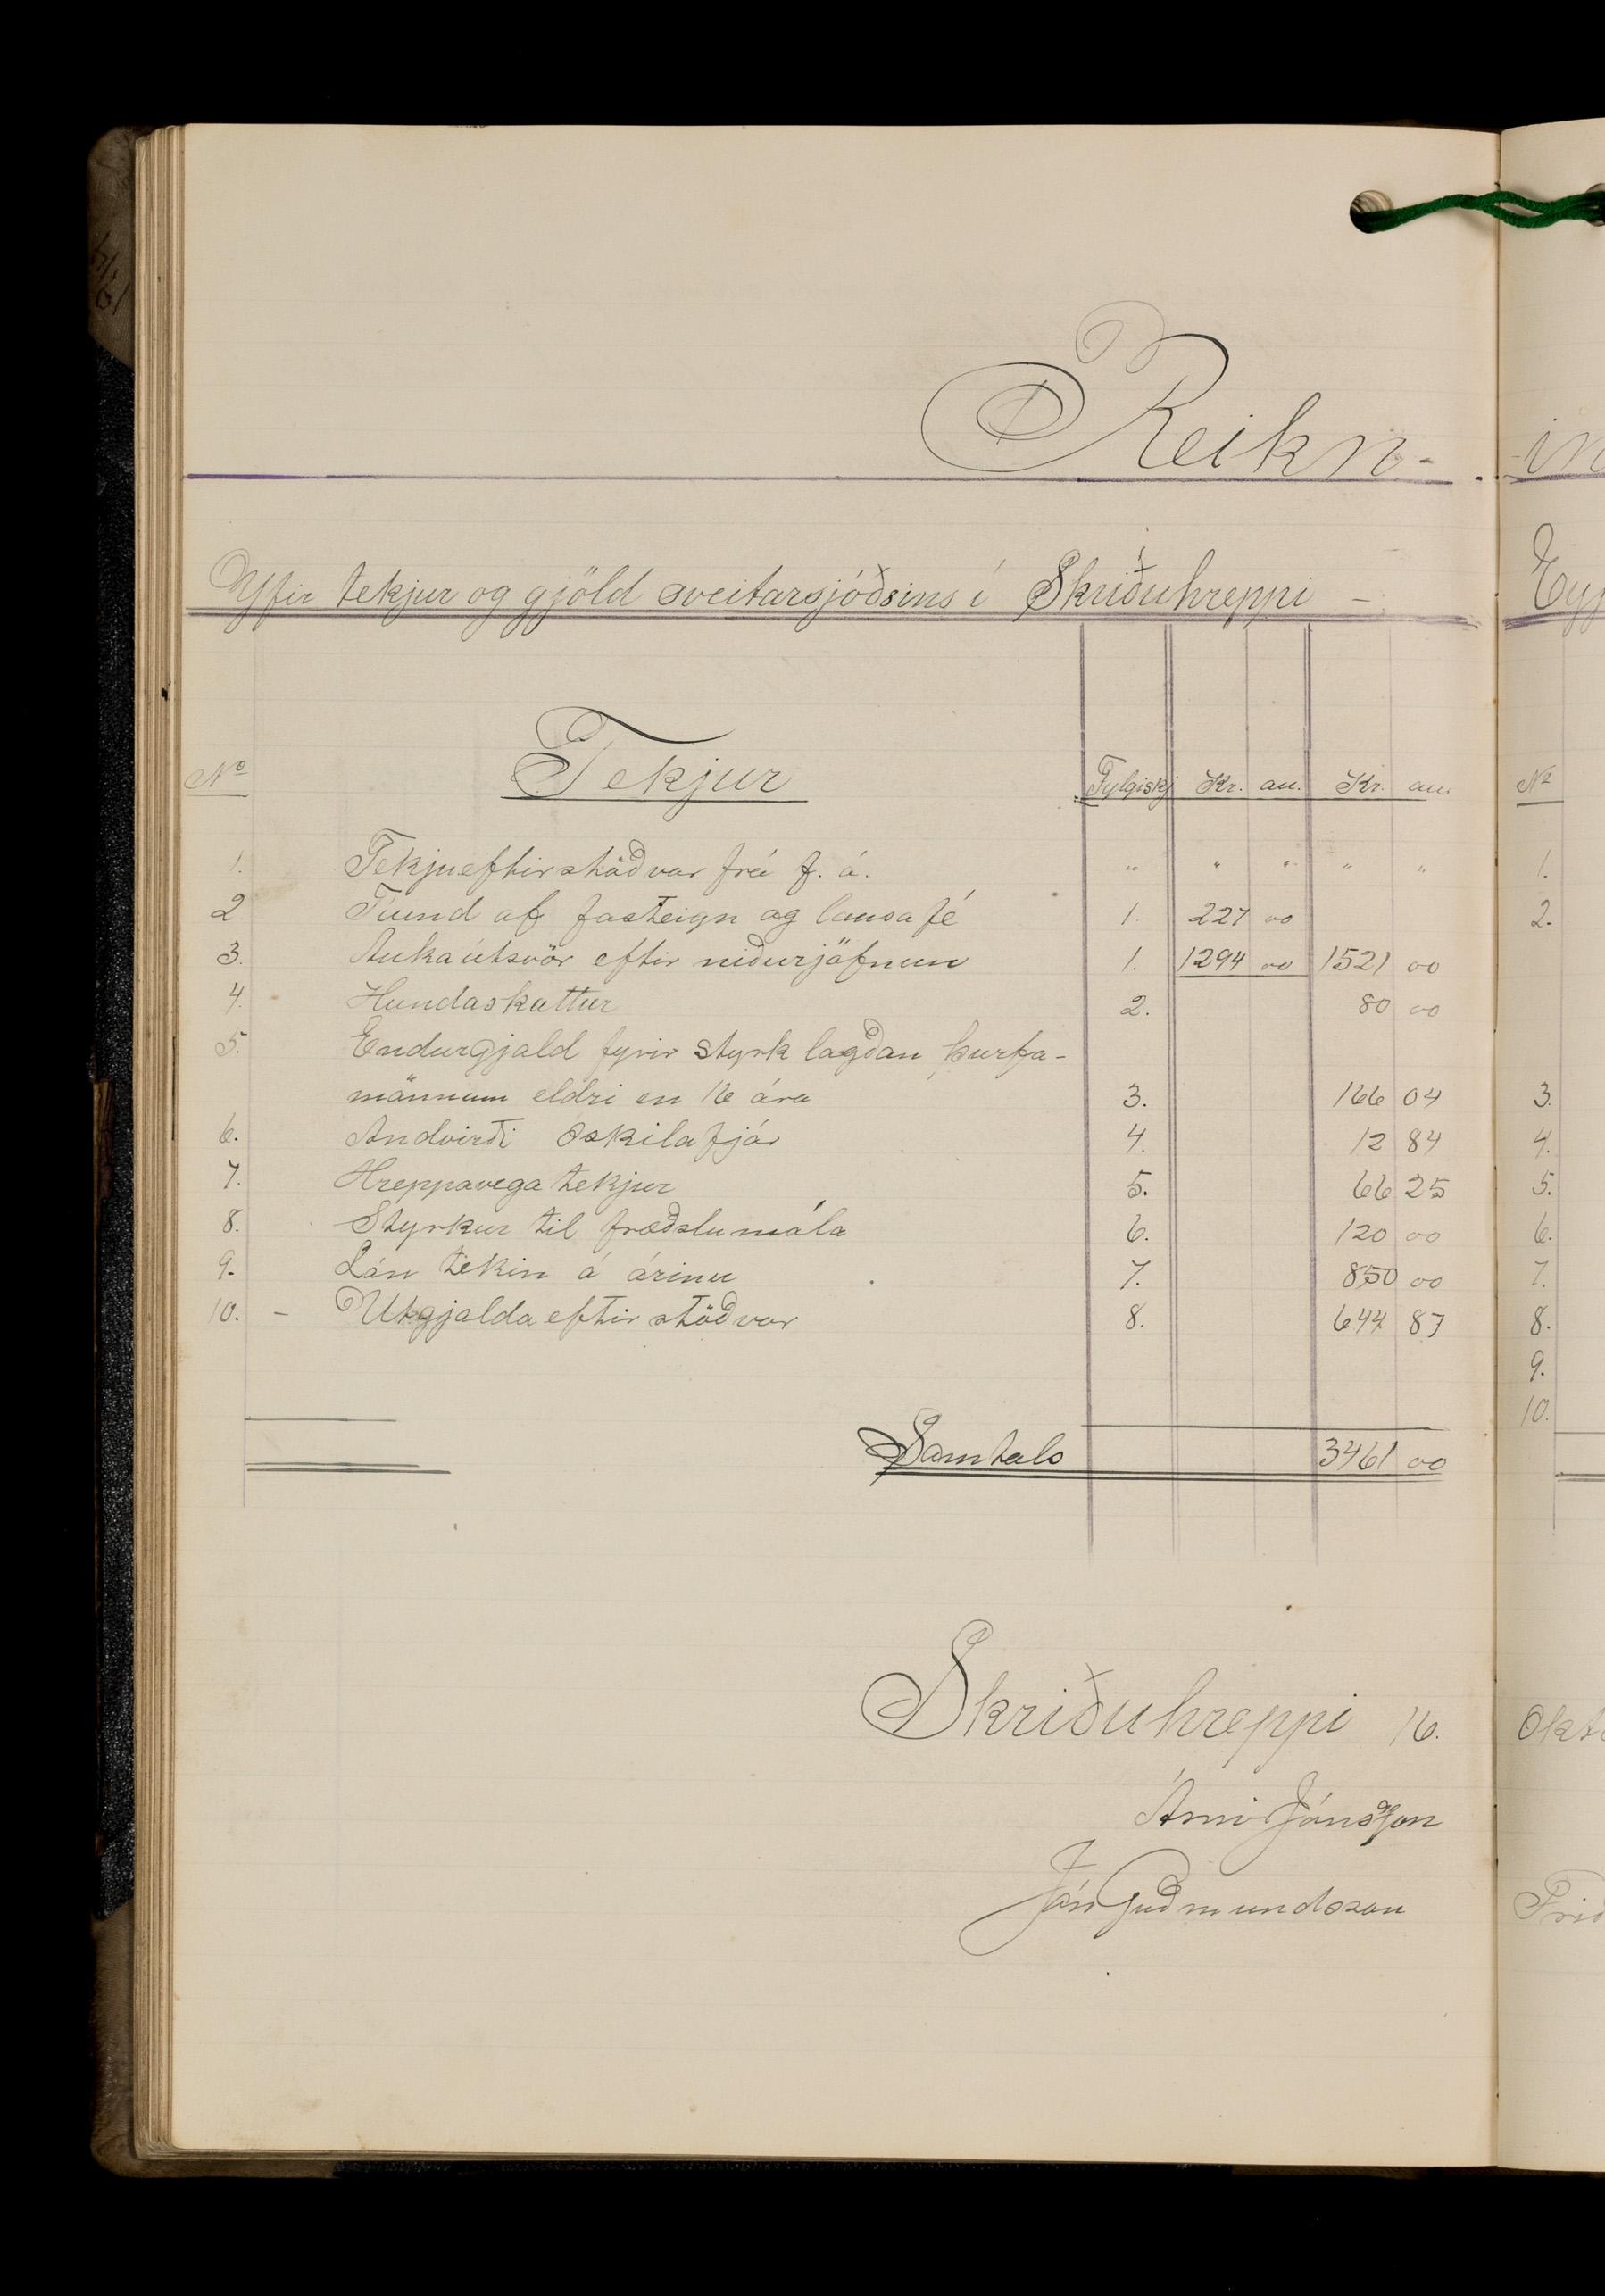 Reikn-
Yfir tekjur og gjöld sveitarsjóðsins í Skriðuhreppi -
No Tekjur Fylgiskj Kr. au. Kr. au.
1. Tekjueftirstöðvar frá f. á. " " " " "
2 Tíund af fasteign og lausafé 1. 227 00
3. Aukaútsvör eftir niðurjöfnun 1. 1294 00 1521 00
4. Hundaskattur 2. 80 00
5. Endurgjald fyrir styrk lagðan þurfa-
mönnum eldri en 16 ára 3. 166 04
6. Andvirði óskilafjár 4. 12 84
7. Hreppavega tekjur 5. 66 25
8. Styrkur til fræðslumála 6. 120 00
9. Lán tekin á árinu 7. 850 00
10. - Útgjalda eftirstöðvar 8. 644 87
Samtals 3461 00
Skriðuhreppi 16.
Árni Jónsson
Jón Guðmundsson
in
Eyj
No
1.
2.
3.
4.
5.
6.
7.
8.
9.
10.
Okt
Frið